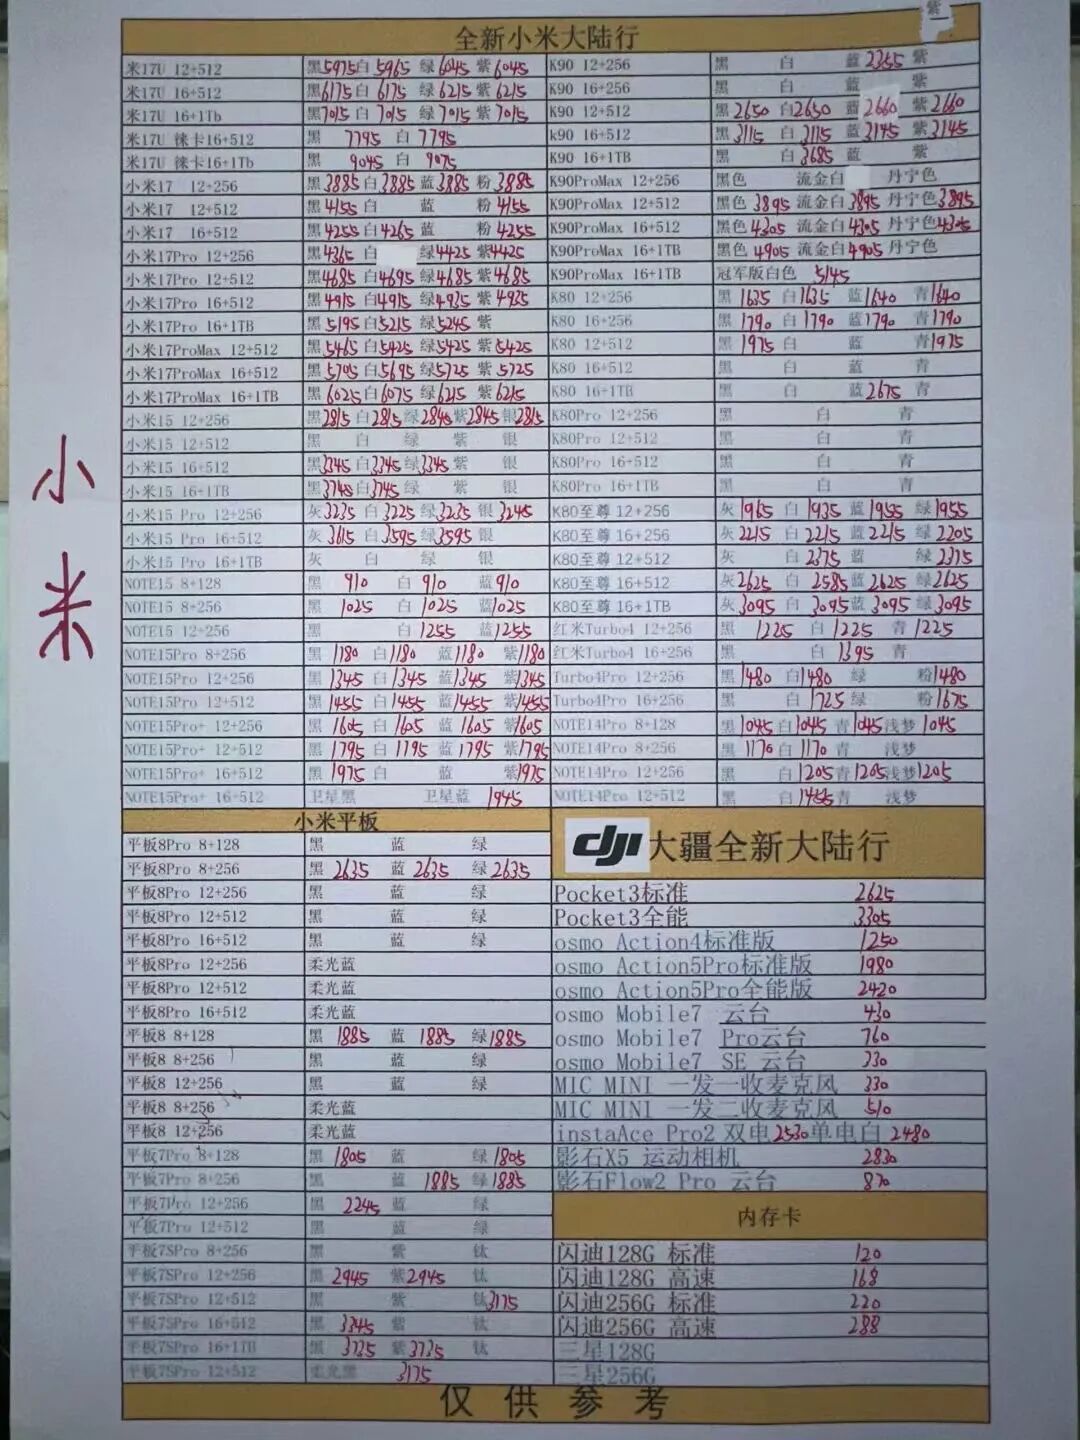 紫
全新小米大陆行
米17U 12+512 黑5975白5965 绿6045 紫6045 K90 12+256 黑 白 蓝2355 紫
米17U 16+512 黑6175白6175 绿6215 紫6215 K90 16+256 黑 白 蓝 紫
米17U 16+1Tb 黑7015白7015 绿7015 紫7015 K90 12+512 黑2650 白2650 蓝2660 紫2660
米17U 徕卡16+512 黑 7795 白 7795 k90 16+512 黑3115 白3115 蓝3145 紫3145
米17U 徕卡16+1Tb 黑 9045 白 9075 K90 16+1TB 黑 白3685 蓝 紫
小米17 12+256 黑3885白3885 蓝3885 粉3885 K90ProMax 12+256 黑色 流金白 丹宁色
小米17 12+512 黑4155白 蓝 粉4155 K90ProMax 12+512 黑色 3895 流金白3895 丹宁色3895
小米17 16+512 黑4255白4265 蓝 粉4255 K90ProMax 16+512 黑色4305 流金白4305 丹宁色4305
小米17Pro 12+256 黑4365 白 绿4425 紫4425 K90ProMax 16+1TB 黑色 4905 流金白4905 丹宁色
小米17Pro 12+512 黑4685白4695 绿4685 紫4685 K90ProMax 16+1TB 冠军版白色 5145
小米17Pro 16+512 黑4915白4915 绿4935 紫4935 K80 12+256 黑 1635 白1635 蓝1640 青1640
小米17Pro 16+1TB 黑5195白5215 绿5245 紫 K80 16+256 黑1790 白1790 蓝1790 青1790
小米17ProMax 12+512 黑5465白5425 绿5425 紫5425 K80 12+512 黑1975 白 蓝 青1975
小米17ProMax 16+512 黑5705白5695 绿5725 紫5725 K80 16+512 黑 白 蓝 青
小米17ProMax 16+1TB 黑6025白6075 绿6215 紫6215 K80 16+1TB 黑 白 蓝2675 青
小米15 12+256 黑2815白2815 绿2845紫2845 银2815 K80Pro 12+256 黑 白 青
小米15 12+512 黑 白 绿 紫 银 K80Pro 12+512 黑 白 青
小米15 16+512 黑3345白3345绿3345紫 银 K80Pro 16+512 黑 白 青
小米15 16+1TB 黑3740白3745 绿 紫 银 K80Pro 16+1TB 黑 白 青
小米15 Pro 12+256 灰3235 白3225 绿3235 银3245 K80至尊 12+256 灰1965 白1935 蓝1955 绿1955
小米15 Pro 16+512 灰3615 白3595绿3595银 K80至尊 16+256 灰2215 白2215 蓝2215 绿2205
小米15 Pro 16+1TB 灰 白 绿 银 K80至尊 12+512 灰 白2375 蓝 绿2375
NOTE15 8+128 黑 910 白910 蓝910 K80至尊 16+512 灰2625 白2585 蓝2625 绿2625
NOTE15 8+256 黑 1025 白1025 蓝1025 K80至尊 16+1TB 灰3095 白3095 蓝3095 绿3095
NOTE15 12+256 黑 白1255 蓝1255 红米Turbo4 12+256 黑 1225 白1225 青1225
NOTE15Pro 8+256 黑1180 白1180 蓝1180 紫1180 红米Turbo4 16+256 黑 白1395 青
NOTE15Pro 12+256 黑1345 白1345 蓝1345 紫1345 Turbo4Pro 12+256 黑1480 白1480 绿 粉1480
NOTE15Pro 12+512 黑1455 白1455 蓝1455 紫1455 Turbo4Pro 16+256 黑 白1725 绿 粉1675
NOTE15Pro+ 12+256 黑1605 白1605 蓝1605 紫1605 NOTE14Pro 8+128 黑1045白1045 青1045浅梦1045
NOTE15Pro+ 12+512 黑1795 白1795 蓝1795 紫1795 NOTE14Pro 8+256 黑1170白1170 青 浅梦
NOTE15Pro+ 16+512 黑1975 白 蓝 紫1975 NOTE14Pro 12+256 黑 白1205青1205浅梦1205
NOTE15Pro+ 16+512 卫星黑 卫星蓝 1945 NOTE14Pro 12+512 黑 白1455青 浅梦
小米
小米平板
平板8Pro 8+128 黑 蓝 绿
平板8Pro 8+256 黑 2635 蓝 2635 绿2635
平板8Pro 12+256 黑 蓝 绿
平板8Pro 12+512 黑 蓝 绿
平板8Pro 16+512 黑 蓝 绿
平板8Pro 12+256 柔光蓝
平板8Pro 12+512 柔光蓝
平板8Pro 16+512 柔光蓝
平板8 8+128 黑 1885 蓝 1885 绿1885
平板8 8+256 黑 蓝 绿
平板8 12+256 黑 蓝 绿
平板8 8+256 柔光蓝
平板8 12+256 柔光蓝
平板7Pro 8+128 黑 1805 蓝 绿1805
平板7Pro 8+256 黑 蓝1885 绿1885
平板7Pro 12+256 黑 2245 蓝 绿
平板7Pro 12+512 黑 蓝 绿
平板7SPro 8+256 黑 紫 钛
平板7SPro 12+256 黑 2945 紫2945 钛
平板7SPro 12+512 黑 紫 钛3175
平板7SPro 16+512 黑 3345 紫 钛
平板7SPro 16+1TB 黑 3735 紫3735 钛
平板7SPro 12+512 柔光黑 3175
dji 大疆全新大陆行
Pocket3标准 2625
Pocket3全能 3305
osmo Action4标准版 1250
osmo Action5Pro标准版 1980
osmo Action5Pro全能版 2420
osmo Mobile7 云台 430
osmo Mobile7 Pro云台 760
osmo Mobile7 SE 云台 330
MIC MINI 一发一收麦克风 330
MIC MINI 一发二收麦克风 510
instaAce Pro2 双电2530单电白 2480
影石X5 运动相机 2830
影石Flow2 Pro 云台 870
内存卡
闪迪128G 标准 120
闪迪128G 高速 168
闪迪256G 标准 220
闪迪256G 高速 288
三星128G
三星256G
仅供参考